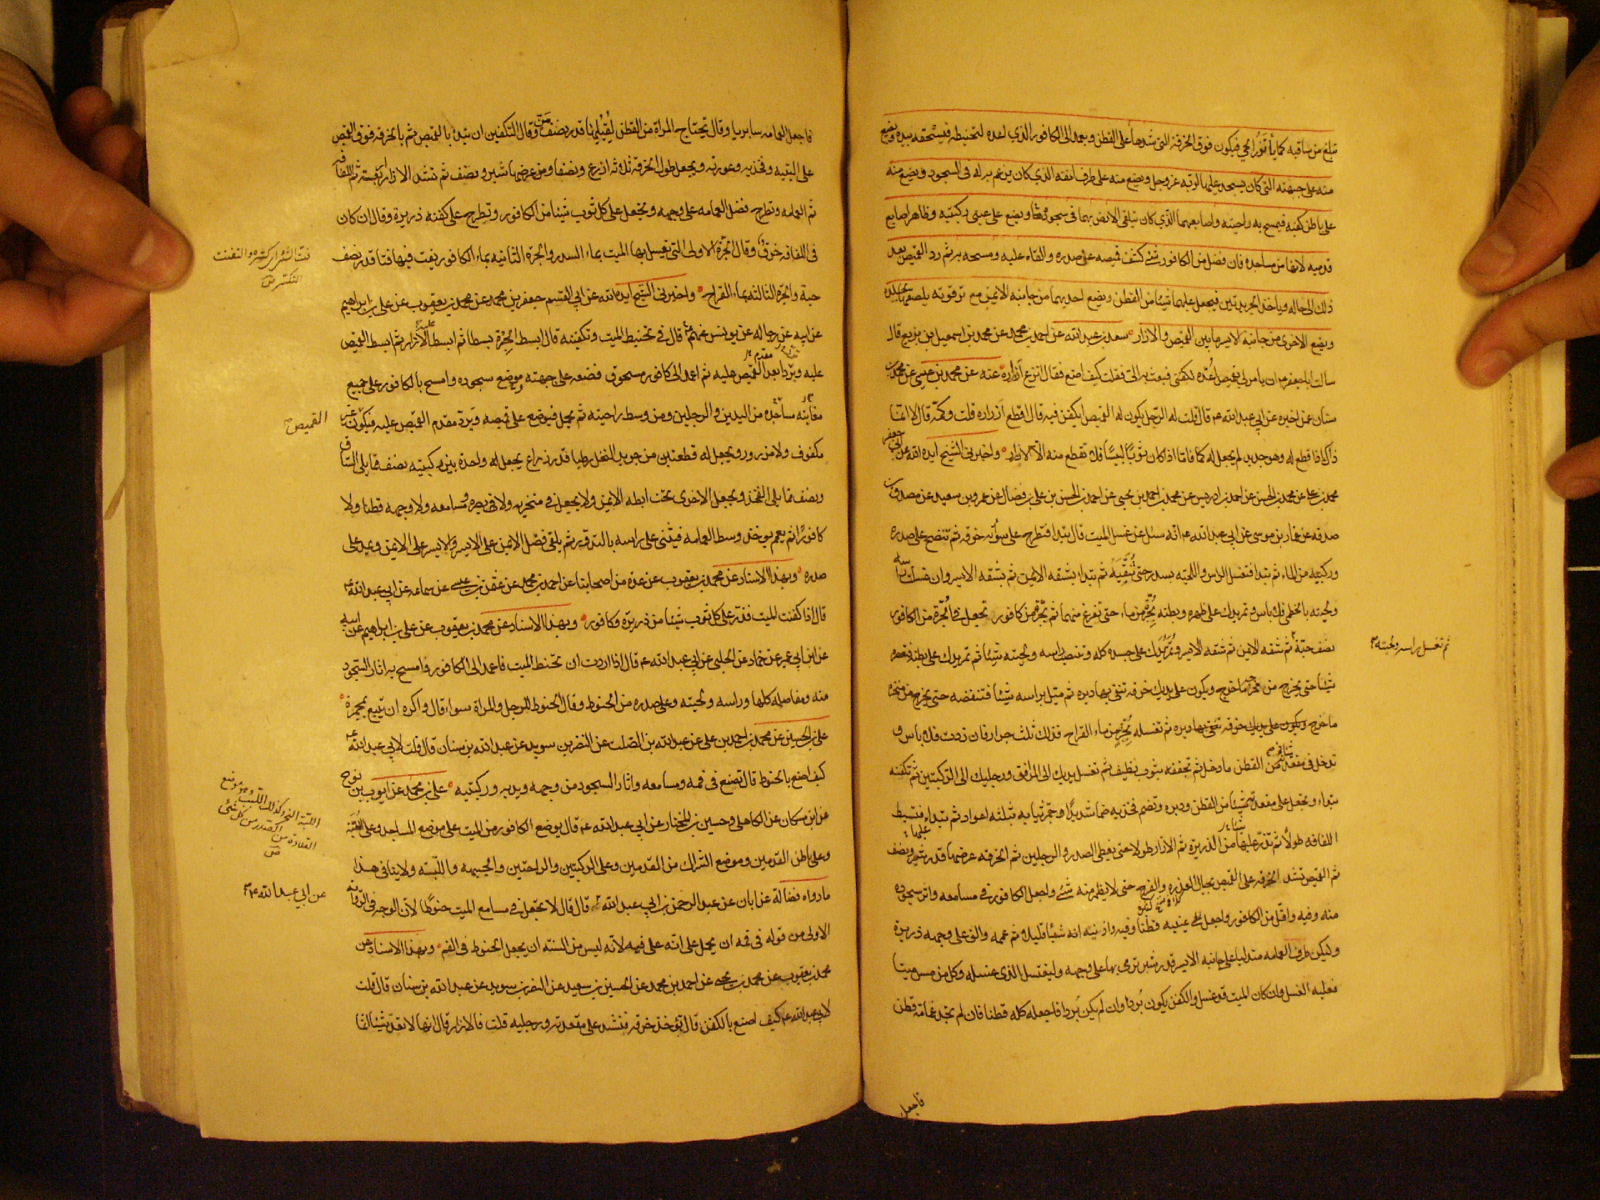 تبلغ من ساقيه كما يأتزر الحي فيكون فوق الخرقة التي شدها على القطن ويعمد الى الكافور الذي اعده لتحنيطه فيسحقه بيده ويضع
منه على جبهته التي كان يسجد عليها لربه عز وجل ويضع منه على طرف انفه الذي كان يرغم به له في السجود ويضع منه
على باطن كفيه فيمسح به راحتيه واصابعهما الذي كان يتلقى الارض بهما في سجوده ويضع على عيني ركبتيه وظاهر اصابع
قدميه لانها من مساجده فان فضل من الكافور شئ كشف قميصه عن صدره والقاه عليه ومسحه به ثم رد القميص بعد
ذلك الى حاله وياخذ الجريدتين فيجعل عليهما شيئا من القطن ويضع احديهما من جانبه الايمن مع ترقوته يلصقها بجلده
ويضع الاخرى من جانبه الايسر ما بين القميص والازار سعد بن عبد الله عن احمد بن محمد عن محمد بن اسمعيل بن بزيع قال
سالت ابا جعفر ع ان يامر لي بقميص اعده لكفني فبعث به الى فقلت كيف اصنع فقال انزع ازراره عنه عن محمد بن عيسى عن محمد بن
سنان عمن اخبره عن ابي عبد الله ع قال قلت له الرجل يكون له القميص ايكفن فيه قال اقطع ازراره قلت وكمه قال لا انما
ذلك اذا قطع له وهو جديد لم يجعل له كما فاما اذا كان ثوبا لبيسا فلا تقطع منه الا الازرار واخبرني الشيخ ايده الله عن ابي جعفر
محمد بن علي عن محمد بن الحسن عن احمد بن ادريس عن محمد بن احمد بن يحيى عن احمد بن الحسن بن علي بن فضال عن عمرو بن سعيد عن مصدق بن
صدقه عن عمار بن موسى عن ابي عبد الله ع انه سئل عن غسل الميت قال تبدا فتطرح على سوأته خرقه ثم تنضح على صدره
وركبتيه من الماء ثم تبدا فتغسل الراس واللحيه بسدر حتى تنقيه ثم تبدا بشقه الايمن ثم بشقه الايسر وان غسلت راسه
ولحيته بالخطمي فلا باس وتمر يدك على ظهره وبطنه بجرة من ماء حتى تفرغ منهما ثم بجرة من كافور تجعل في الجرة من الكافور
نصف حبة ثم شقه الايمن ثم شقه الايسر وتمر يدك على جسده كله وتنصب راسه ولحيته شيئا ثم تمر يدك على بطنه فتعصره
شيئا حتى يخرج من مخرجه ما خرج ويكون على يدك خرقه تنقي بها دبره ثم ميل براسه شيئا فتنفضه حتى يخرج من منخره
ما خرج ويكون على يدك خرقه تنقي بها دبره ثم تغسله بجرة من ماء القراح فذلك ثلث جرار فان زدت فلا باس و
تدخل في مقعدته شيئا من القطن ما دخل ثم تجففه بثوب نظيف ثم تغسل يديك الى المرافق ورجليك الى الركبتين ثم تكفنه
تبداء وتجعل على مقعدته شيئا من القطن ودبره وتضم فخذيه ضما شديدا وجمر ثيابه بثلثه اعواد ثم تبداء فتبسط
اللفافه طولا ثم تذر عليها من الذريرة ثم الازار طولا حتى يغطي الصدر والرجلين ثم الخرقه عرضها قدر شبر ونصف
ثم القميص تشد الخرقه على القميص بحيال العورة والفرج حتى لا يظهر منه شئ واجعل الكافور في مسامعه واثر سجوده
منه وفيه واقل من الكافور واجعل على عينيه قطنا وفيه واذنيه شيئا قليلا ثم عممه والق على وجهه ذريرة
وليكن طرف العمامه متدليا على جانبه الايسر قدر شبر يرمى بها على وجهه وليغتسل الذي غسله وكل من مس ميتا
فعليه الغسل وان كان الميت قد غسل والكفن يكون بردا وان لم يكن بردا فاجعله كله قطنا فان لم تجد عمامة قطن
فاجعل
ثم تغسل راسه ولحيته
فاجعل العمامه سابريا وقال تحتاج المراة من القطن لقبلها قدر نصف من وقال التكفين ان تبدا بالقميص ثم بالخرقه فوق القميص
على اليتيه وفخذيه وعورته ويجعل طول الخرقه ثلاثه اذرع ونصفا ومن عرضها شبر ونصف ثم تشد الازار اربعه ثم اللفافه
ثم العمامه وتطرح فضل العمامه على وجهه وتجعل على كل ثوب شيئا من الكافور وتطرح على كفنه ذريرة وقال ان كان
في اللفافه خرق وقال الجرة الاولى التي تغسل بها الميت بماء السدر والجرة الثانيه بماء الكافور يفت فيها فتا قدر نصف
حبة والجرة الثالثه بماء القراح واخبرني الشيخ ايده الله عن ابي القسم جعفر بن محمد عن محمد بن يعقوب عن علي بن ابراهيم
عن ابيه عن رجاله عن يونس عنهم ع قال في تحنيط الميت وتكفينه قال ابسط الحبرة بسطا ثم ابسط عليها الازار ثم ابسط القميص
عليه وترد مقدم القميص عليه ثم اعمد الى كافور مسحوق فضعه على جبهته موضع سجوده وامسح بالكافور على جميع
مغابنه من اليدين والرجلين ومن وسط راحتيه ثم يحمل فيوضع على قميصه ويرد مقدم القميص عليه فيكون القميص غير
مكفوف ولا مزرور ويجعل له قطعتين من جريد النخل رطبا قدر ذراع يجعل له واحدة بين ركبتيه نصف مما يلي الساق
ونصف مما يلي الفخذ ويجعل الاخرى تحت ابطه الايمن ولا يجعل في منخريه ولا في بصره ومسامعه ولا وجهه قطنا ولا
كافورا ثم يعمم يؤخذ وسط العمامه فيثنى على راسه بالتدوير ثم يلقى فضل الايمن على الايسر والايسر على الايمن ويمد على
صدره وبهذا الاسناد عن محمد بن يعقوب عن عدة من اصحابنا عن احمد بن محمد عن عثمن بن عيسى عن سماعه عن ابي عبد الله ع
قال اذا كفنت الميت فذر على كل ثوب شيئا من ذريرة وكافور وبهذا الاسناد عن محمد بن يعقوب عن علي بن ابراهيم عن ابيه
عن ابن ابي عمير عن حماد عن الحلبي عن ابي عبد الله ع قال اذا اردت ان تحنط الميت فاعمد الى الكافور فامسح به اثار السجود
منه ومفاصله كلها وراسه ولحيته وعلى صدره من الحنوط وقال الحنوط للرجل والمراة سواء قال واكره ان يتبع بمجمرة
علي بن الحسين عن محمد بن احمد بن علي عن عبد الله بن الصلت عن النضر بن سويد عن عبد الله بن سنان قال قلت لابي عبد الله ع
كيف اصنع بالحنوط قال تضع في فمه ومسامعه واثار السجود من وجهه ويديه وركبتيه علي بن محمد عن ايوب بن نوح
عن ابن مسكان عن الكاهلي وحسين بن المختار عن ابي عبد الله ع قال يوضع الكافور من الميت على موضع المساجد وعلى اللبة
وعلى باطن القدمين وموضع الشراك من القدمين وعلى الركبتين والراحتين والجبهه واللبته ولا ينافي هذا
ما رواه فضاله عن ابان عن عبد الرحمن بن ابي عبد الله ع قال قال لا تجعل في مسامع الميت حنوطا لان الوجه في الرواية
الاولى من قوله في فمه ان يحمل على انه على فيه لانه ليس من السنه ان يجعل الحنوط في الفم وبهذا الاسناد عن
محمد بن يعقوب عن محمد بن يحيى عن احمد بن محمد عن الحسين بن سعيد عن النضر بن سويد عن عبد الله بن سنان قال قلت
لابي عبد الله ع كيف اصنع بالكفن قال تؤخذ خرقه فتشد على مقعدته ورجليه قلت فالازار قال انها لا تعد شيئا انما
القميص
عن ابي عبد الله